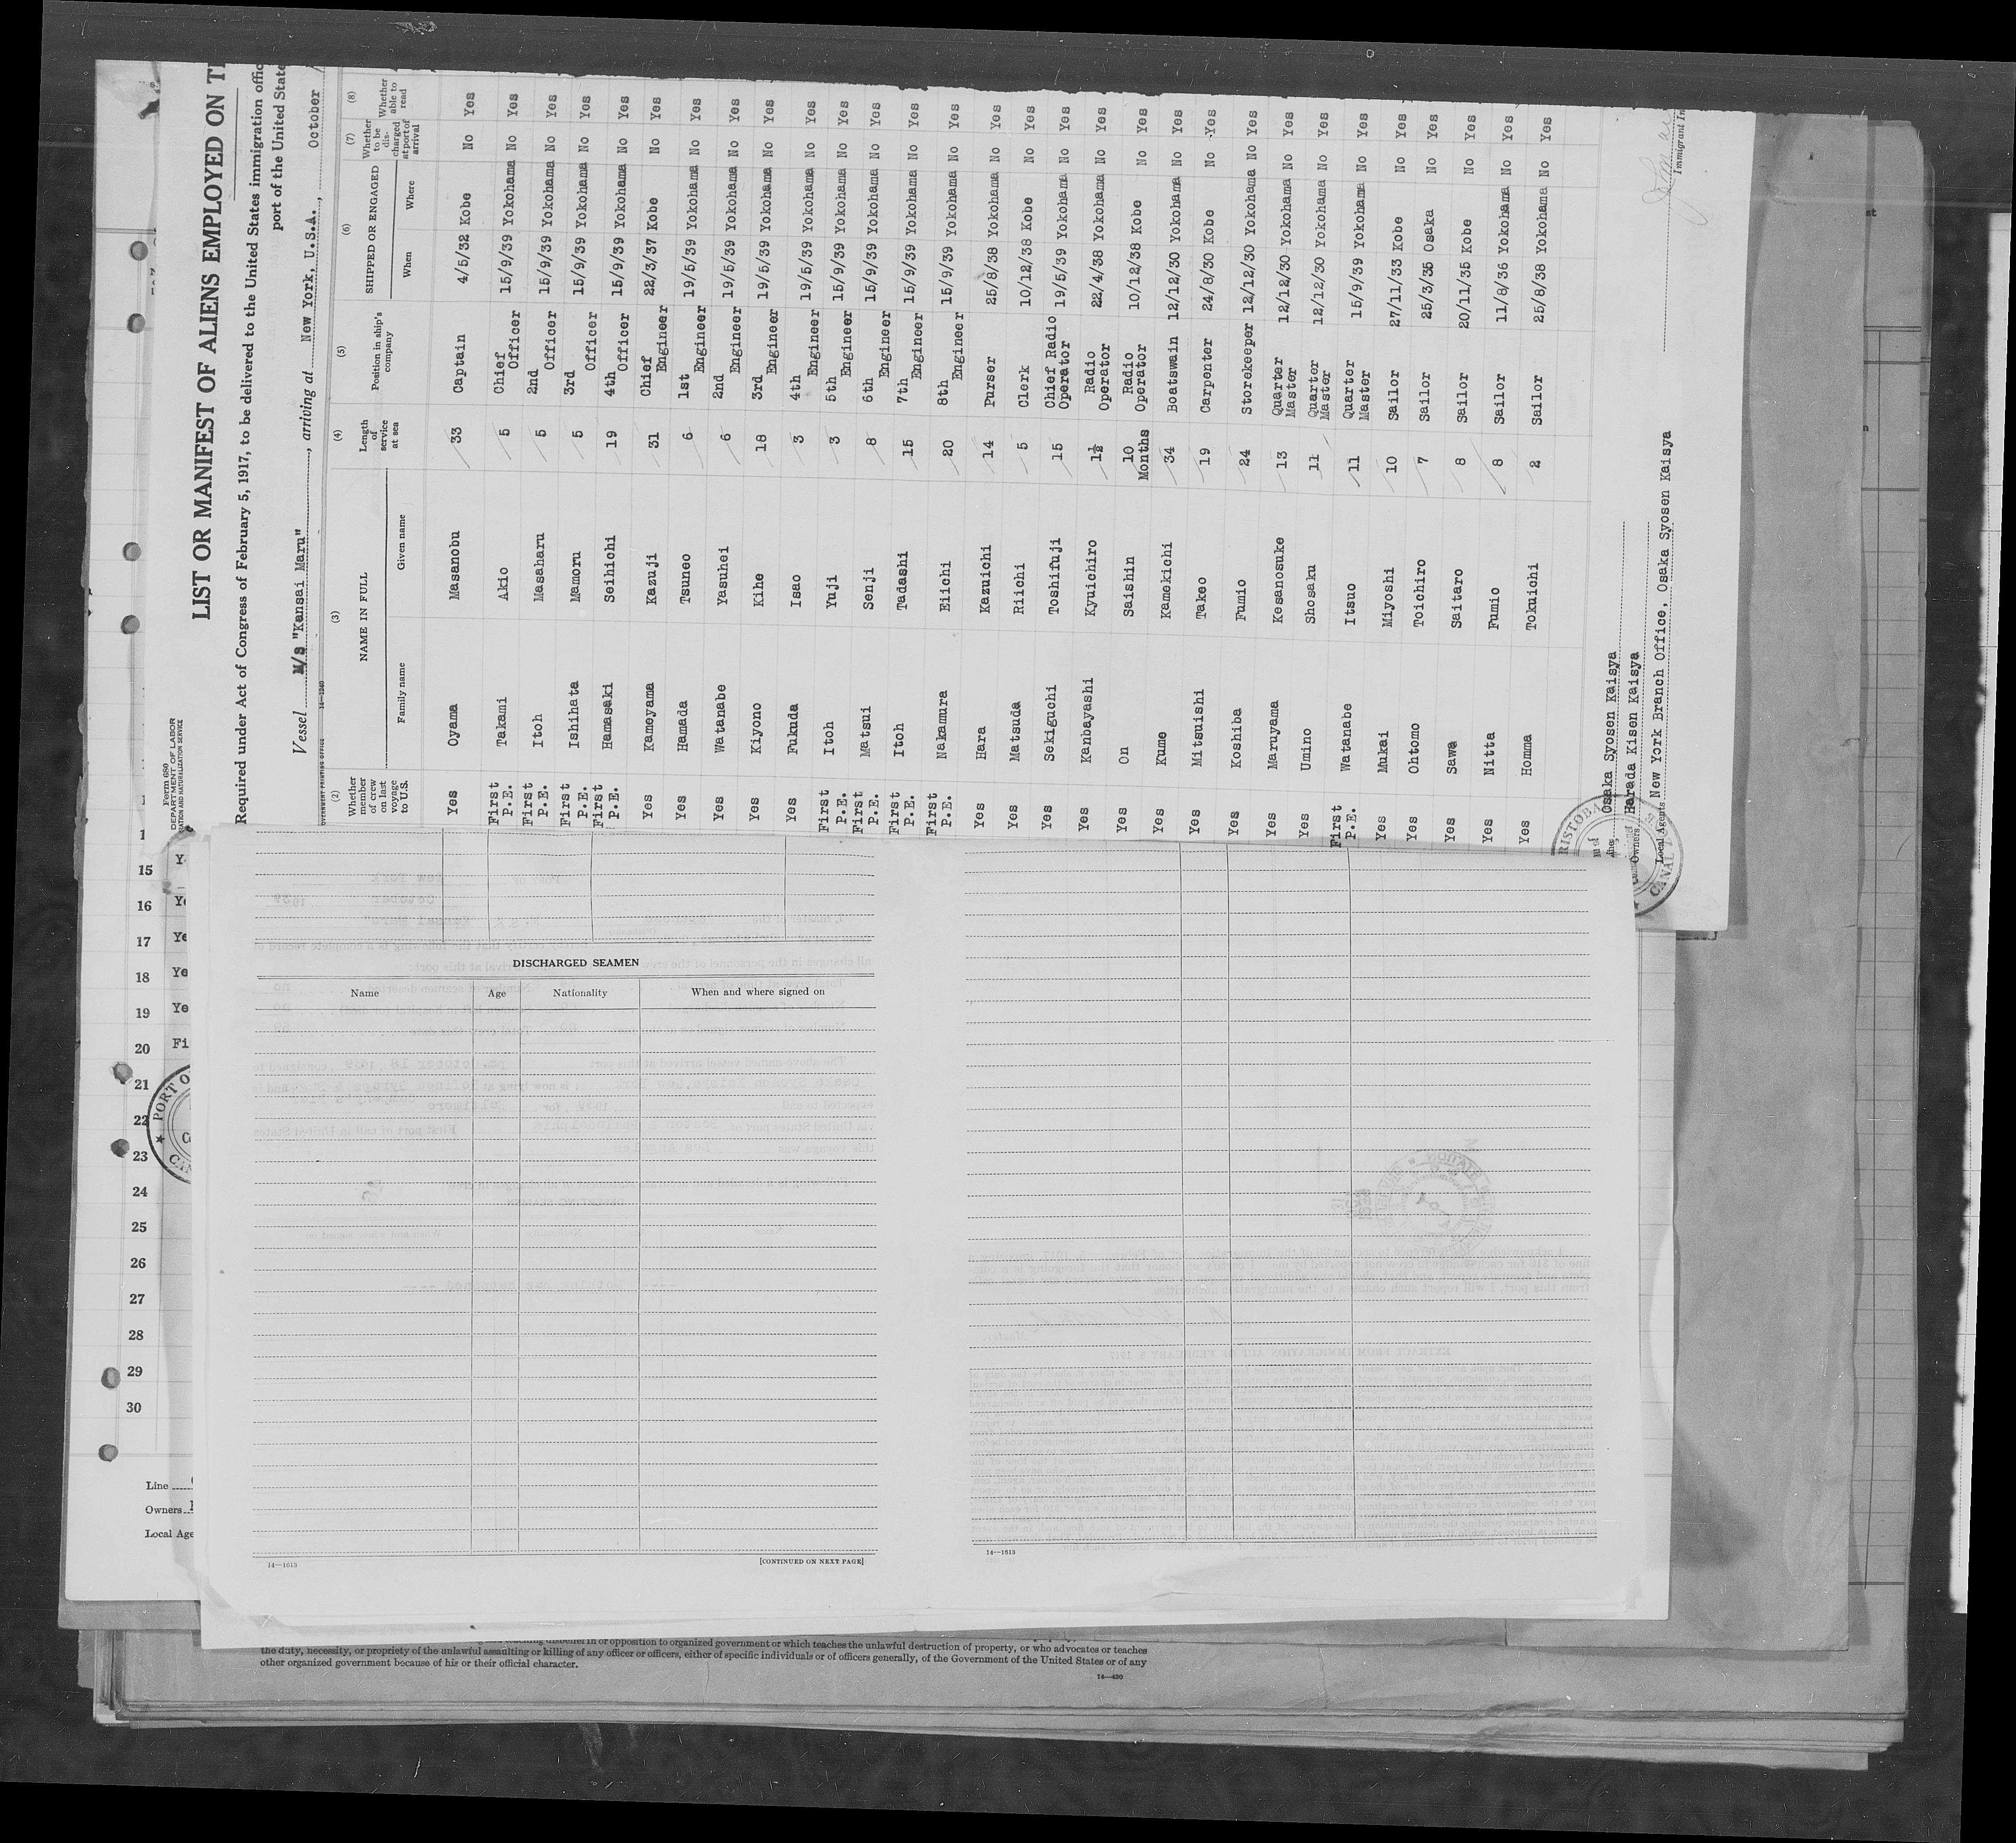 Form 680
DEPARTMENT OF LABOR
LIST OR MANIFEST OF ALIENS EMPLOYED ON
Required under Act of Congress of February 5, 1917, to be delivered to the United States immigration
port of the United
Vessel M/S "Kansai Maru", arriving at New York, U.S.A., October
14—1240
(2) (3) (4) (5) (6) (7) (8)
Whether member of crew on last voyage to U.S. NAME IN FULL Length of service at sea Position in ship's company SHIPPED OR ENGAGED Whether to be discharged at port of arrival Whether able to read
Family name Given name When Where
Yes Oyama Masanobu 33 Captain 4/5/32 Kobe No Yes
First P.E. Takami Akio 5 Chief Officer 15/9/39 Yokohama No Yes
First P.E. Itoh Masaharu 5 2nd Officer 15/9/39 Yokohama No Yes
First P.E. Ishihata Mamoru 5 3rd Officer 15/9/39 Yokohama No Yes
First P.E. Hamasaki Seihichi 19 4th Officer 15/9/39 Yokohama No Yes
Yes Kameyama Kazuji 31 Chief Engineer 22/3/37 Kobe No Yes
Yes Hamada Tsuneo 6 1st Engineer 19/5/39 Yokohama No Yes
Yes Watanabe Yasuhei 6 2nd Engineer 19/5/39 Yokohama No Yes
Yes Kiyono Kihe 18 3rd Engineer 19/5/39 Yokohama No Yes
Yes Fukuda Isao 3 4th Engineer 19/5/39 Yokohama No Yes
First P.E. Itoh Yuji 3 5th Engineer 15/9/39 Yokohama No Yes
First P.E. Matsui Senji 8 6th Engineer 15/9/39 Yokohama No Yes
First P.E. Itoh Tadashi 15 7th Engineer 15/9/39 Yokohama No Yes
First P.E. Nakamura Eiichi 20 8th Engineer 15/9/39 Yokohama No Yes
Yes Hara Kazuichi 14 Purser 25/8/38 Yokohama No Yes
Yes Matsuda Riichi 5 Clerk 10/12/38 Kobe No Yes
Yes Sekiguchi Toshifuji 15 Chief Radio Operator 19/5/39 Yokohama No Yes
Yes Kanbayashi Kyuichiro 1½ Radio Operator 22/4/38 Yokohama No Yes
Yes On Saishin 10 Months Radio Operator 10/12/38 Kobe No Yes
Yes Kume Kamekichi 34 Boatswain 12/12/30 Yokohama No Yes
Yes Mitsuishi Takeo 19 Carpenter 24/8/30 Kobe No Yes
Yes Koshiba Fumio 24 Storekeeper 12/12/30 Yokohama No Yes
Yes Maruyama Kesanosuke 13 Quarter Master 12/12/30 Yokohama No Yes
Yes Umino Shosaku 11 Quarter Master 12/12/30 Yokohama No Yes
First P.E. Watanabe Itsuo 11 Quarter Master 15/9/39 Yokohama No Yes
Yes Mukai Miyoshi 10 Sailor 27/11/33 Kobe No Yes
Yes Ohtomo Toichiro 7 Sailor 25/3/35 Osaka No Yes
Yes Sawa Saitaro 8 Sailor 20/11/35 Kobe No Yes
Yes Nitta Fumio 8 Sailor 11/8/36 Yokohama No Yes
Yes Homma Tokuichi 2 Sailor 25/8/38 Yokohama No Yes
Osaka Syosen Kaisya
Owners Harada Kisen Kaisya
Local Agents New York Branch Office, Osaka Syosen Kaisya
15
16
17 Ye
18 Ye
19 Ye
20 Fi
21
22
23
24
25
26
27
28
29
30
PORT O
Line
Owners
Local Age
DISCHARGED SEAMEN
Name Age Nationality When and where signed on
14—1613
[CONTINUED ON NEXT PAGE]
14—1613
in or opposition to organized government or which teaches the unlawful destruction of property, or who advocates or teaches
the duty, necessity, or propriety of the unlawful assaulting or killing of any officer or officers, either of specific individuals or of officers generally, of the Government of the United States or of any
other organized government because of his or their official character.
14—430